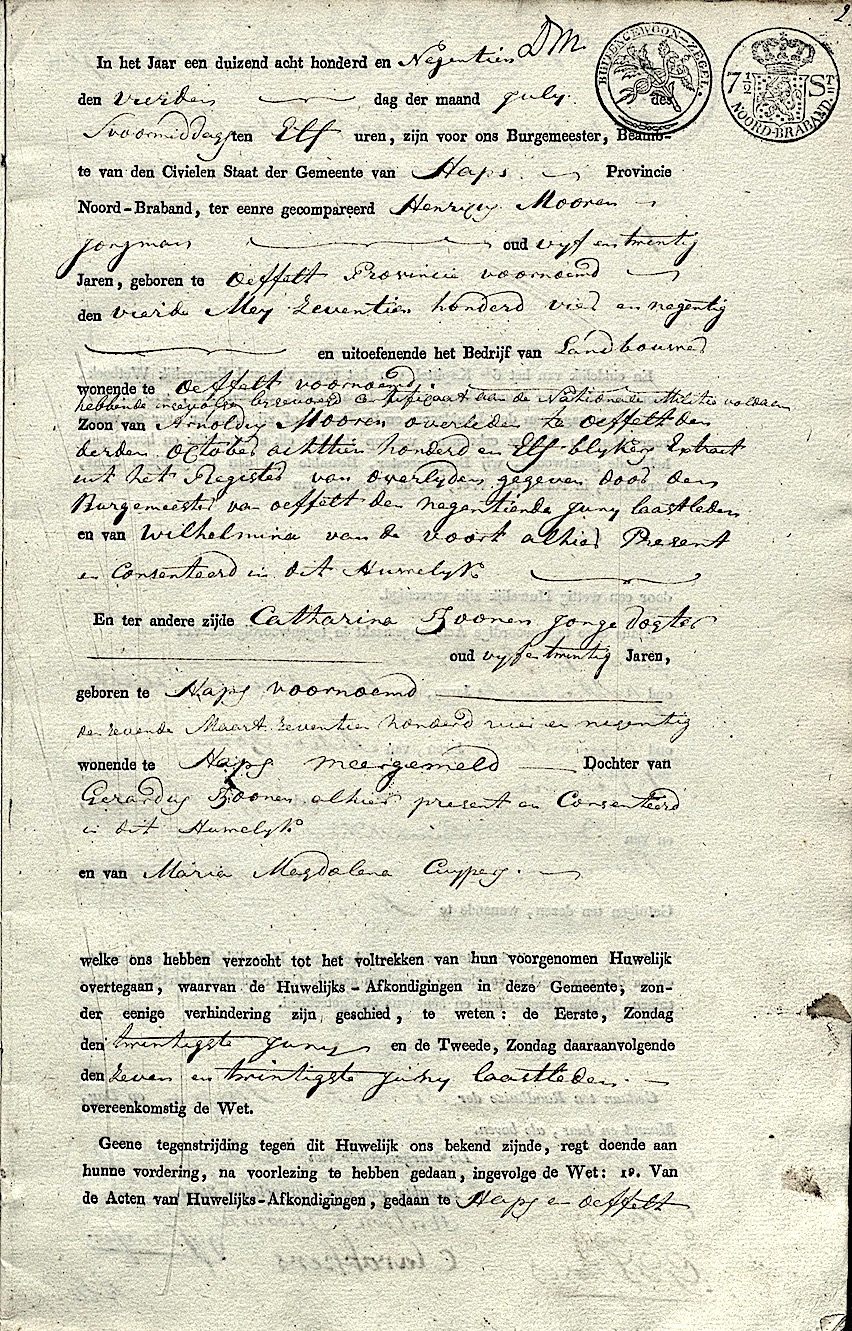 2
BUITENGEWOON-ZEGEL.
7½ ST
NOORD-BRABAND.
In het Jaar een duizend acht honderd en Negentien
den vierden dag der maand july des
Svoormiddags ten Elf uren, zijn voor ons Burgemeester, Beamb-
te van den Civielen Staat der Gemeente van Haps Provincie
Noord-Braband, ter eenre gecompareerd Henricus Mooren
jongman oud vyf en twintig
Jaren, geboren te Oeffelt Provincie voornoemd
den vierde Mey zeventien honderd vier en negentig
en uitoefenende het Bedrijf van Landbouwer
wonende te Oeffelt voornoemd.
hebbende ingevolge certificaat aan de Nationale Militie voldaan
Zoon van Arnoldus Mooren overleden te Oeffelt den
derden October achttien honderd en Elf blykens Extract
uit het Register van overlyden gegeven door den
Burgemeester van Oeffelt den negentiende juny laastleden
en van Wilhelmina van de Voort alhier Present
en Consenteerd in dit Huwelyk
En ter andere zijde Catharina Thoonen jonge dogter
oud vyf en twintig Jaren,
geboren te Haps voornoemd
den zevende Maart zeventien honderd vier en negentig
wonende te Haps meergemeld Dochter van
Gerardus Thoonen alhier present en Consenteerd
in dit Huwelyk
en van Maria Magdalena Cuypers.
welke ons hebben verzocht tot het voltrekken van hun voorgenomen Huwelijk
overtegaan, waarvan de Huwelijks-Afkondigingen in deze Gemeente, zon-
der eenige verhindering zijn geschied, te weten: de Eerste, Zondag
den twintigste juny en de Tweede, Zondag daaraanvolgende
den zeven en twintigste juny laastleden.
overeenkomstig de Wet.
Geene tegenstrijding tegen dit Huwelijk ons bekend zijnde, regt doende aan
hunne vordering, na voorlezing te hebben gedaan, ingevolge de Wet: 1º. Van
de Acten van Huwelijks-Afkondigingen, gedaan te Haps en Oeffelt